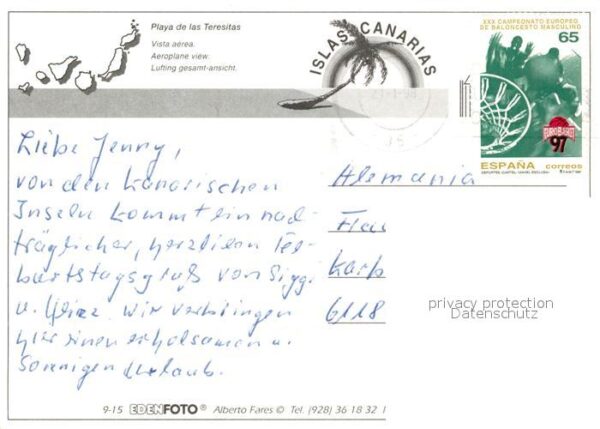 Playa de las Teresitas
Vista aérea.
Aeroplane view.
Lufting gesamt-ansicht.
ISLAS CANARIAS
XXX CAMPEONATO EUROPEO
DE BALONCESTO MASCULINO
65
EUROBASKET
97
ESPAÑA correos
Liebe Jenny,
von den kanarischen
Inseln kommt ein nach-
träglicher, herzlichen Ge-
burtstagsgruß von Siggi
u. Heinz. Wir verbringen
hier einen erholsamen u.
sonnigen Urlaub.
Alemania
6118
privacy protection
Datenschutz
9-15 EDENFOTO® Alberto Fares © Tel. (928) 36 18 32